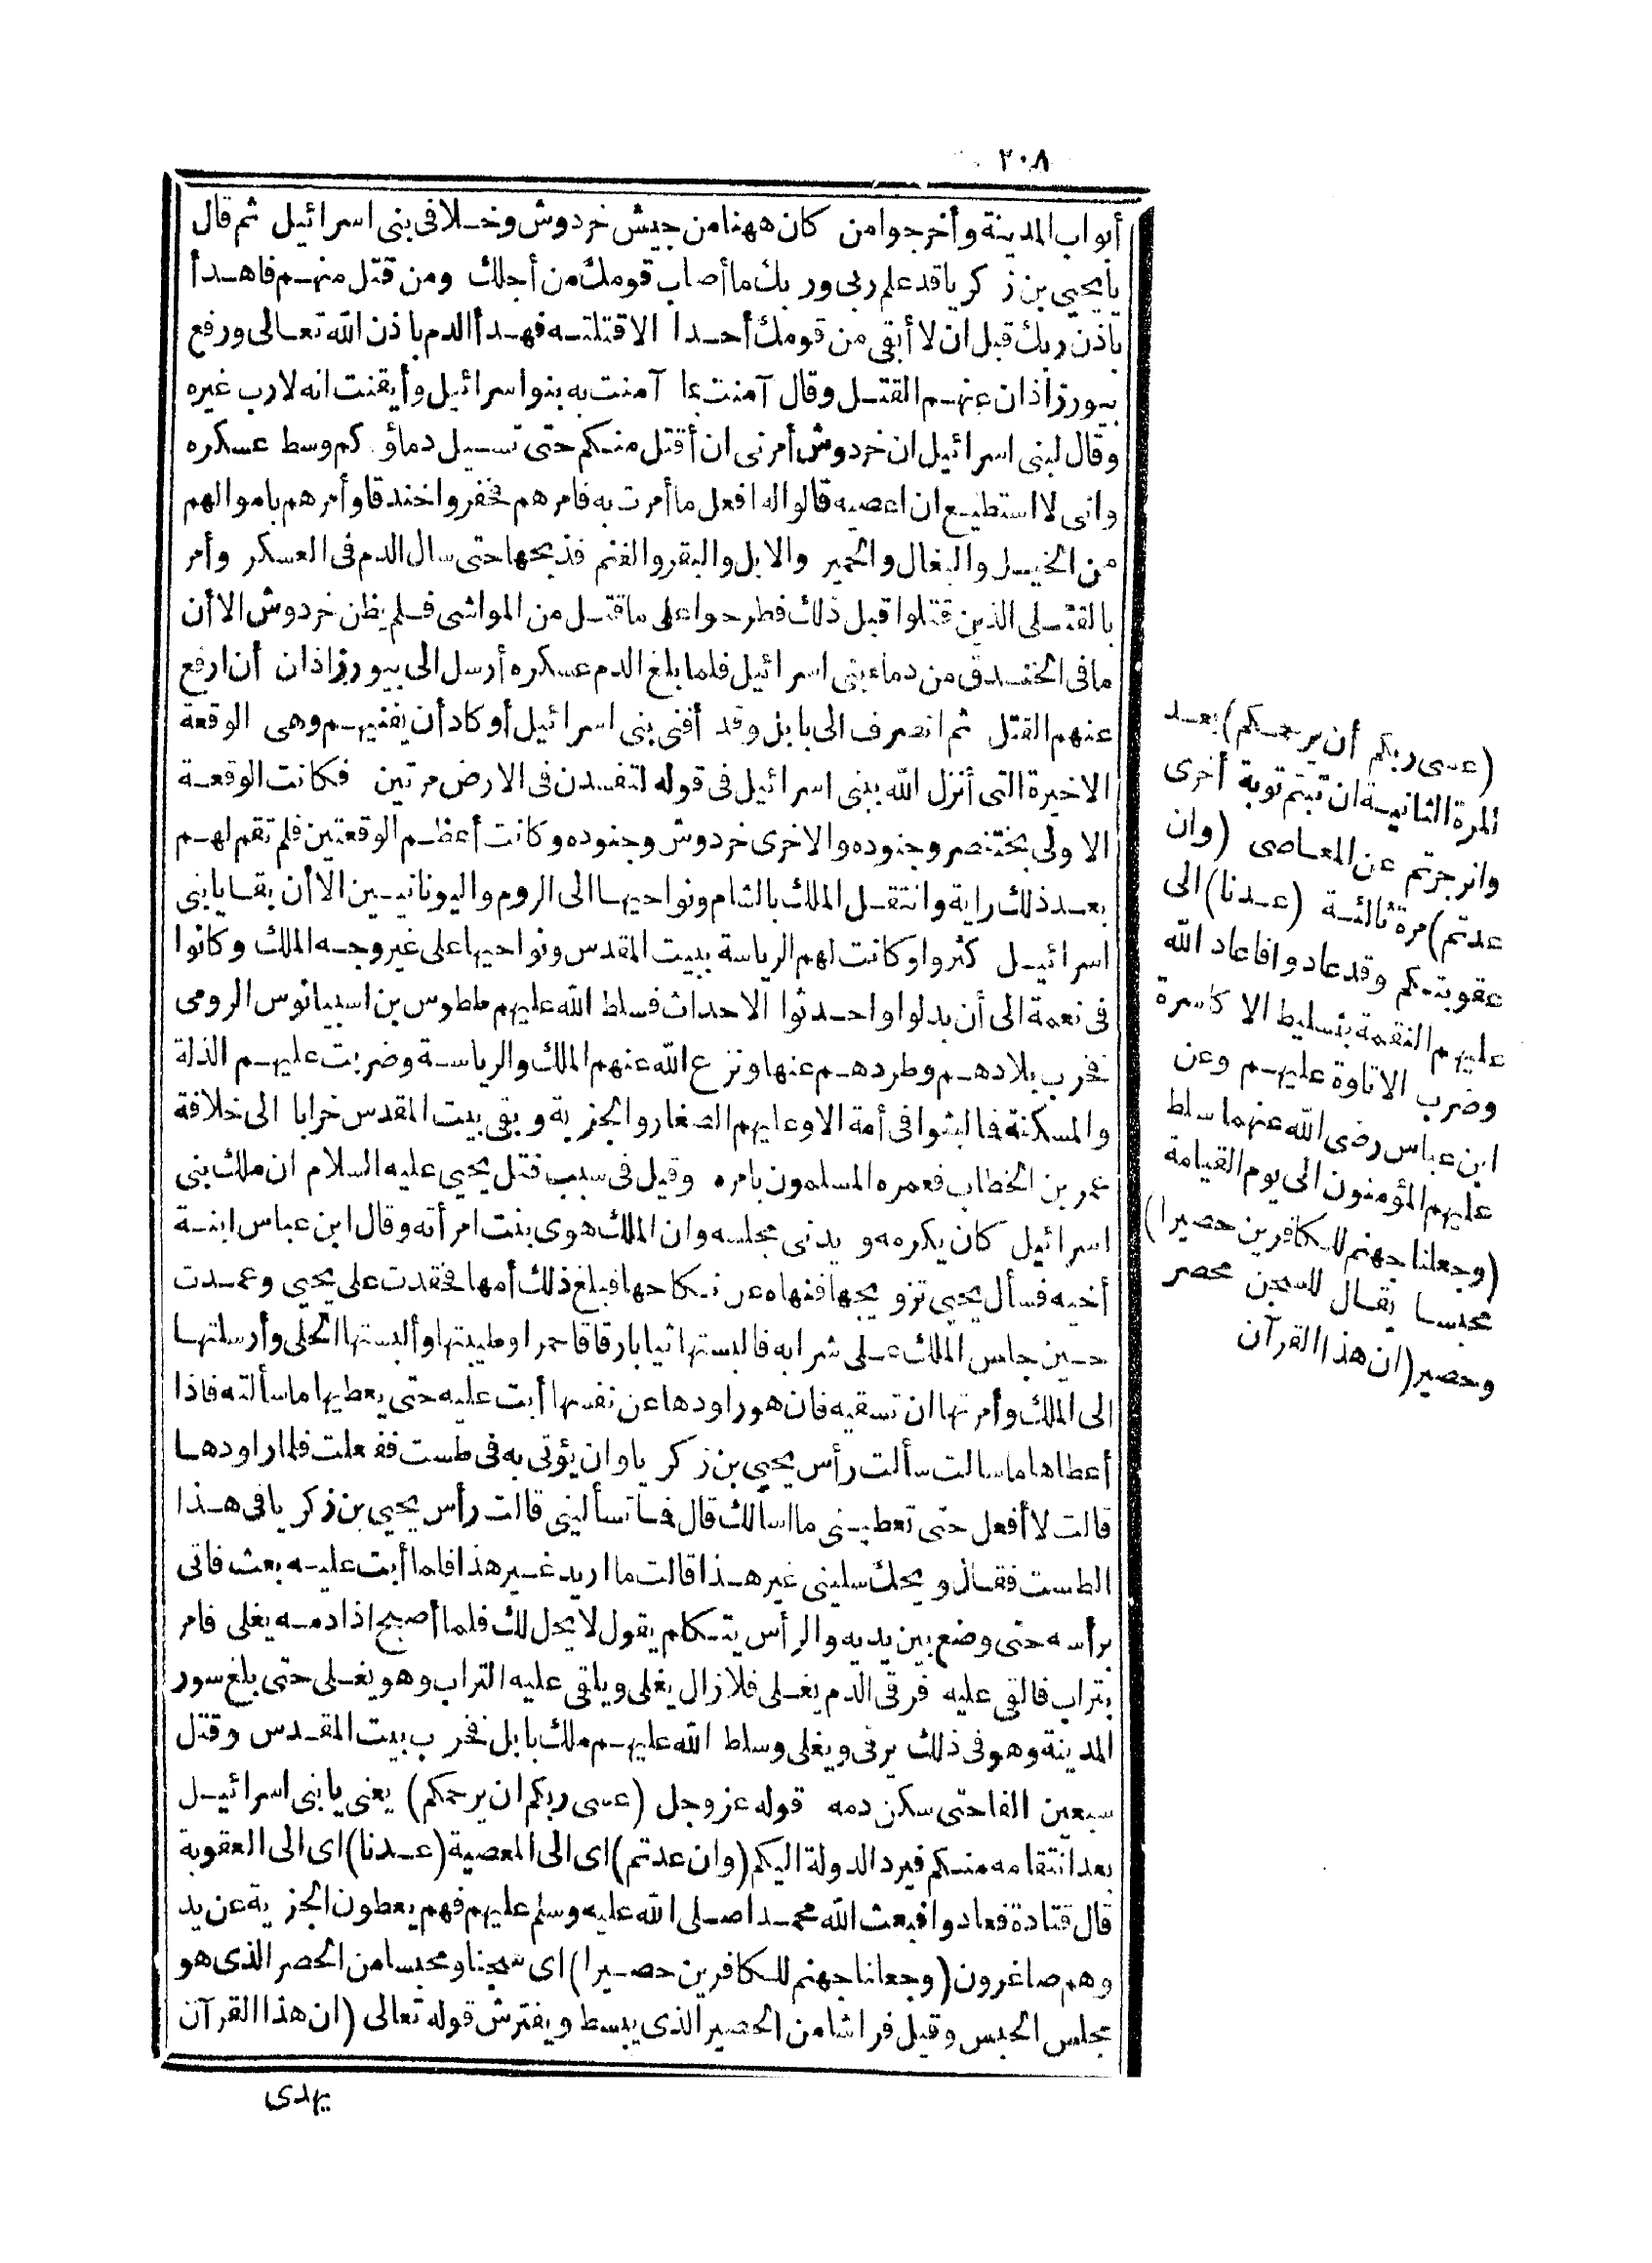 ٢٠٨
أبواب المدينة وأخرجوا من كان ههنا من جيش خردوش وخلا فى بنى اسرائيل ثم قال
يا يحيى بن زكريا قد علم ربى وربك ما أصاب قومك من أجلك ومن قتل منهم فاهدأ
باذن ربك قبل ان لا أبقى من قومك أحدا الا قتلته فهدأ الدم باذن الله تعالى ورفع
بيورزاذان عنهم القتل وقال آمنت بما آمنت به بنو اسرائيل وأيقنت انه لا رب غيره
وقال لبنى اسرائيل ان خردوش أمرنى ان أقتل منكم حتى تسيل دماؤكم وسط عسكره
وانى لا استطيع ان اعصيه قالوا له افعل ما أمرت به فامرهم فحفروا خندقا وأمرهم باموالهم
من الخيل والبغال والحمير والابل والبقر والغنم فذبحها حتى سال الدم فى العسكر وأمر
بالقتلى الذين قتلوا قبل ذلك فطرحوا على ما قتل من المواشى فلم يظن خردوش الا أن
ما فى الخندق من دماء بنى اسرائيل فلما بلغ الدم عسكره أرسل الى بيورزاذان أن ارفع
عنهم القتل ثم انصرف الى بابل وقد أفنى بنى اسرائيل أو كاد أن يفنيهم وهى الوقعة
الاخيرة التى أنزل الله ببنى اسرائيل فى قوله لتفسدن فى الارض مرتين فكانت الوقعة
الاولى بختنصر وجنوده والاخرى خردوش وجنوده وكانت أعظم الوقعتين فلم تقم لهم
بعد ذلك راية وانتقل الملك بالشام ونواحيها الى الروم واليونانيين الا أن بقايا بنى
اسرائيل كثروا وكانت لهم الرياسة ببيت المقدس ونواحيها على غير وجه الملك وكانوا
فى نعمة الى أن بدلوا واحدثوا الاحداث فسلط الله عليهم ططوس بن اسبيانوس الرومى
فخرب بلادهم وطردهم عنها ونزع الله عنهم الملك والرياسة وضربت عليهم الذلة
والمسكنة فما لبثوا فى أمة الا وعليهم الصغار والجزية وبقى بيت المقدس خرابا الى خلافة
عمر بن الخطاب فعمره المسلمون بامره وقيل فى سبب قتل يحيى عليه السلام ان ملك بنى
اسرائيل كان يكرمه ويدنى مجلسه وان الملك هوى بنت امرأته وقال ابن عباس ابنة
أخيه فسأل يحيى تزويجها فنهاه عن نكاحها فبلغ ذلك أمها فحقدت على يحيى وعمدت
حين جلس الملك على شرابه فالبستها ثيابا رقاقا حمرا وطيبتها وألبستها الحلى وأرسلتها
الى الملك وأمرتها ان تسقيه فان هو راودها عن نفسها أبت عليه حتى يعطيها ما سألته فاذا
أعطاها ما سالت سألت رأس يحيى بن زكريا وان يؤتى به فى طست ففعلت فلما راودها
قالت لا أفعل حتى تعطينى ما اسألك قال فما تسألينى قالت رأس يحيى بن زكريا فى هذا
الطست فقال ويحك سلينى غير هذا قالت ما اريد غير هذا فلما أبت عليه بعث فاتى
برأسه حتى وضع بين يديه والرأس يتكلم يقول لا يحل لك فلما أصبح اذا دمه يغلى فامر
بتراب فالقى عليه فرقى الدم يغلى فلا زال يغلى ويلقى عليه التراب وهو يغلى حتى بلغ سور
المدينة وهو فى ذلك يرقى ويغلى وسلط الله عليهم ملك بابل فخرب بيت المقدس وقتل
سبعين الفا حتى سكن دمه قوله عز وجل (عسى ربكم ان يرحمكم) يعنى يا بنى اسرائيل
بعد انتقامه منكم فيرد الدولة اليكم (وان عدتم) اى الى المعصية (عدنا) اى الى العقوبة
قال قتادة فعادوا فبعث الله محمدا صلى الله عليه وسلم عليهم فهم يعطون الجزية عن يد
وهم صاغرون (وجعلنا جهنم للكافرين حصيرا) اى سجنا ومحبسا من الحصر الذى هو
مجلس الحبس وقيل فراشا من الحصير الذى يبسط ويفترش قوله تعالى (ان هذا القرآن
يهدى
(عسى ربكم أن يرحمكم) بعد
المرة الثانية ان تبتم توبة أخرى
وانزجرتم عن المعاصى (وان
عدتم) مرة ثالثة (عدنا) الى
عقوبتكم وقد عادوا فاعاد الله
عليهم النقمة بتسليط الاكاسرة
وضرب الاتاوة عليهم وعن
ابن عباس رضى الله عنهما سلط
عليهم المؤمنون الى يوم القيامة
(وجعلنا جهنم للكافرين حصيرا)
محبسا يقال للسجن محصر
وحصير (ان هذا القرآن